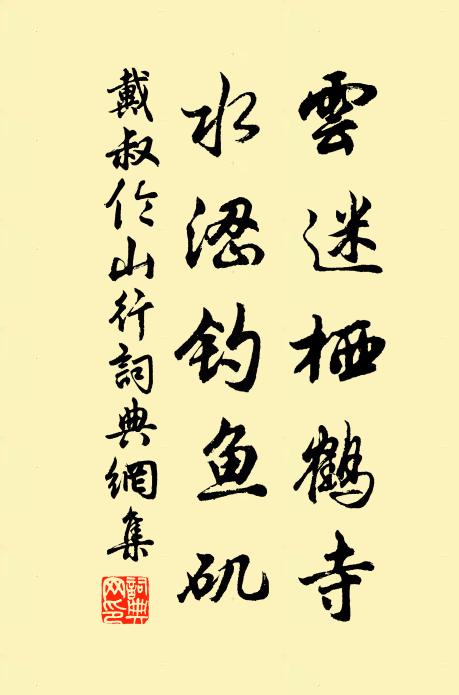 雲迷栖鶴寺
水涩钓鱼矶
戴叔伦山行詞典網集
詞典网印